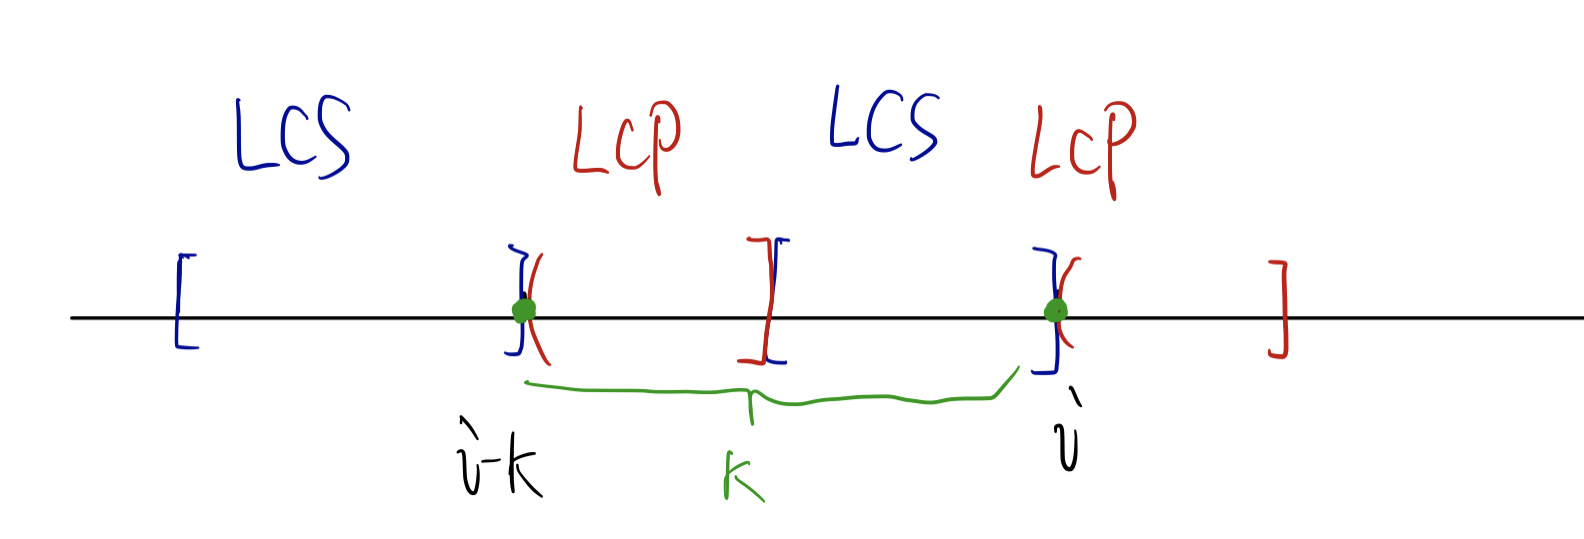 LCS LCP LCS LCP
i-k k i